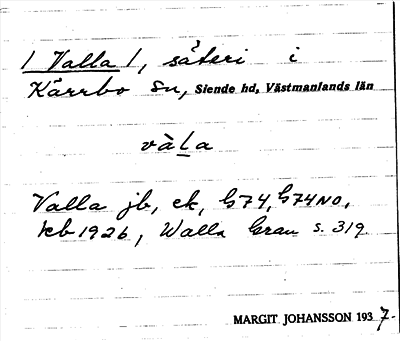 / Valla /, säteri i
Kärrbo sn, Siende hd, Västmanlands län
våḷa
Valla jb, ek, G74, G74NO,
kb 1926, Walla Grau s. 319
MARGIT JOHANSSON 1937-